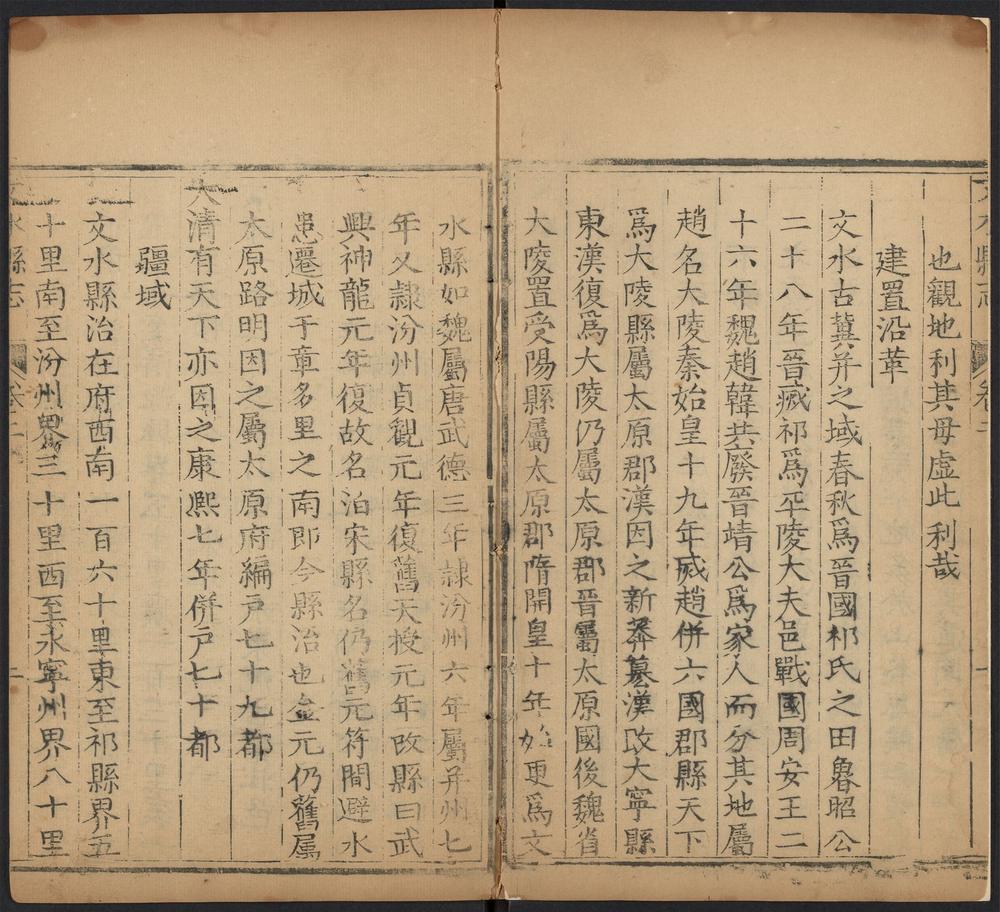 文水縣志 卷二 一
也觀地利其毋虛此利哉
建置沿革
文水古冀并之域春秋爲晉國祁氏之田魯昭公
二十八年晉滅祁爲平陵大夫邑戰國周安王二
十六年魏趙韓共廢晉靖公爲家人而分其地屬
趙名大陵秦始皇十九年滅趙併六國郡縣天下
爲大陵縣屬太原郡漢因之新莽簒漢改大寧縣
東漢復爲大陵仍屬太原郡晉屬太原國後魏省
大陵置受陽縣屬太原郡隋開皇十年始更爲文
水縣如魏屬唐武德三年隷汾州六年屬并州七
年又隷汾州貞觀元年復舊天授元年改縣曰武
興神龍元年復故名泊宋縣名仍舊元符間避水
患遷城于章多里之南即今縣治也金元仍舊屬
太原路明因之屬太原府編戸七十九都
大清有天下亦因之康熙七年併戸七十都
疆域
文水縣治在府西南一百六十里東至祁縣界五
十里南至汾州界三十里西至永寧州界八十里
水縣志 卷二 一